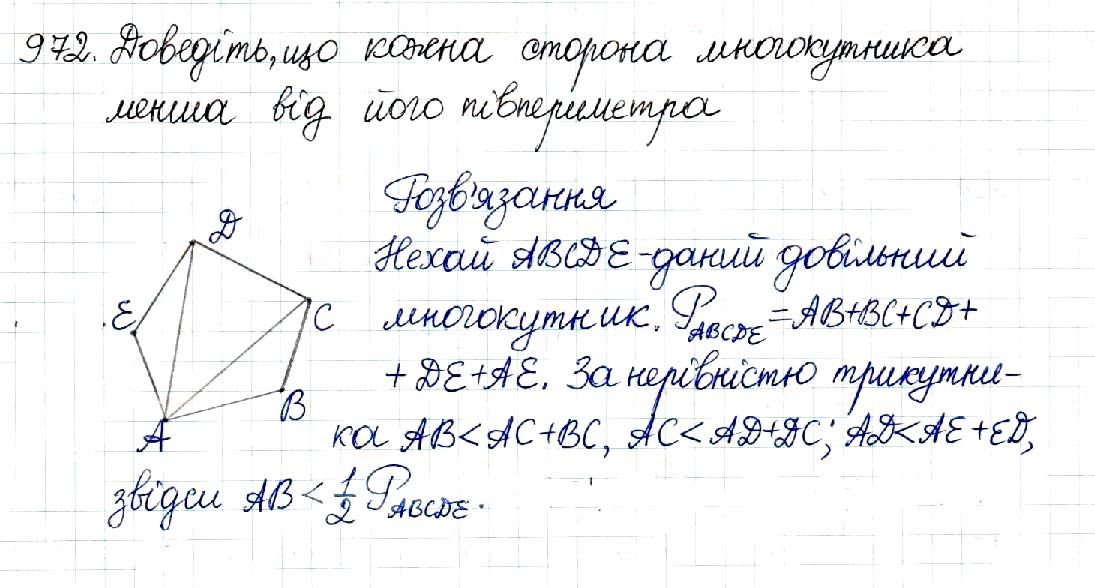 972. Доведіть, що кожна сторона многокутника
менша від його півпериметра
Розв'язання
Нехай ABCDE - даний довільний
многокутник. P_ABCDE = AB+BC+CD+
+ DE+AE. За нерівністю трикутни-
ка AB < AC+BC, AC < AD+DC; AD < AE+ED,
звідси AB < 1/2 P_ABCDE.
D
E
C
B
A